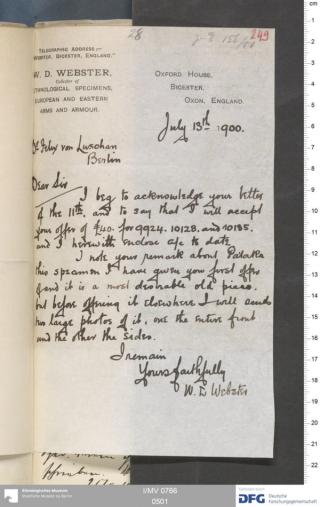 28
249
TELEGRAPHIC ADDRESS:—
"WEBSTER, BICESTER, ENGLAND."
W. D. WEBSTER,
Collector of
ETHNOLOGICAL SPECIMENS,
EUROPEAN AND EASTERN
ARMS AND ARMOUR.
OXFORD HOUSE,
BICESTER,
OXON, ENGLAND.
July 13th 1900.
Dr Felix von Luschan
Berlin
Dear Sir
I beg to acknowledge your letter
of the 11th, and to say that I will accept
your offer of £40. for 9924. 10128. and 10185.
and I herewith enclose a/c to date
I note your remark about Pataka
this specimen I have given you first offer
of and it is a most desirable old piece.
but before offering it elsewhere I will send
two large photos of it, one the entire front
and the other the sides.
I remain
Yours faithfully
W. D Webster
Ethnologisches Museum
Staatliche Museen zu Berlin
I/MV 0766
0501
DFG
Deutsche
Forschungsgemeinschaft
cm
1
2
3
4
5
6
7
8
9
10
11
12
13
14
15
16
17
18
19
20
21
22